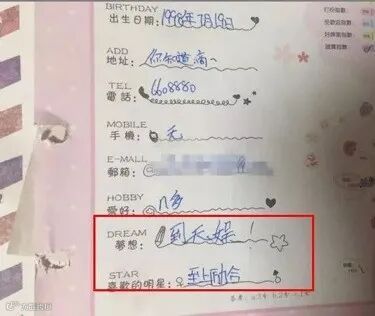 BIRTHDAY
出生日期: 1998年7月19日
ADD
地址: 你知道高一
TEL
電話: 6608880
MOBILE
手機: 无
E-MALL
郵箱:
HOBBY
愛好: 几多
DREAM
夢想: 到天娱!
STAR
喜歡的明星: 至上励合